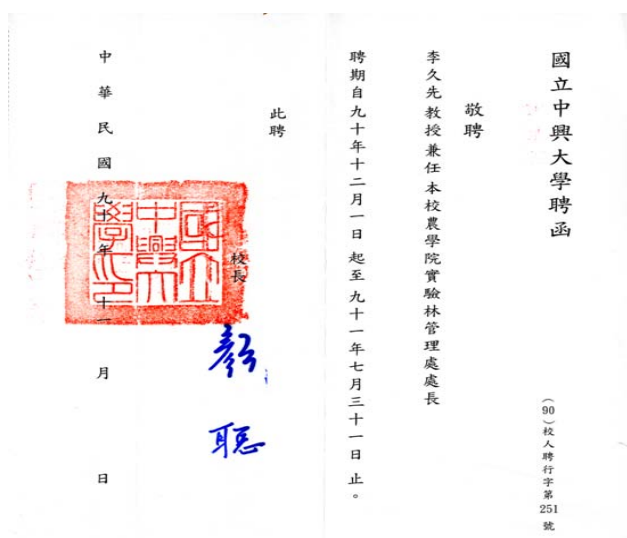 國立中興大學聘函
(90)校人聘行字第251號
敬聘
李久先教授兼任本校農學院實驗林管理處處長
聘期自九十年十二月一日起至九十一年七月三十一日止。
此聘
校長
顏聰
國立中興大學印
中華民國九十年十一月日